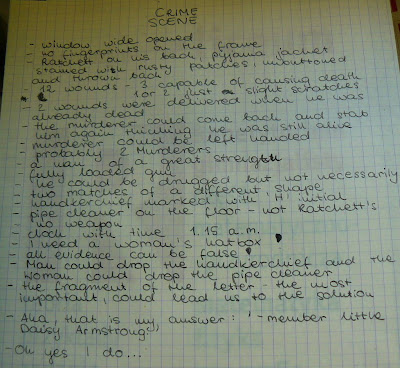 CRIME
SCENE
- window wide opened
- no fingerprints on the frame
- Ratchett on his back, pyjama jacket
stained with rusty patches, unbuttoned
and thrown back
- 12 wounds - 3 capable of causing death
1 or 2 just slight scratches
- 2 wounds were delivered when he was
already dead
- the murderer could come back and stab
him again thinking he was still alive
- murderer could be left handed
- probably 2 Murderers
- a man of a great strength
- fully loaded gun
- he could be drugged but not necessarily
- two matches of a different shape
- handkerchief marked with 'H' initial
- pipe cleaner on the floor - not Ratchett's
- no weapon
- clock with time 1.15 a.m.
- I need a woman's hatbox!
- all evidence can be false!
- Man could drop the handkerchief and the
woman could drop the pipe cleaner
- the fragment of the letter - the most
important, could lead us to the solution
- Aha, that is my answer: '-member little
Daisy Armstrong'
- Oh yes I do...